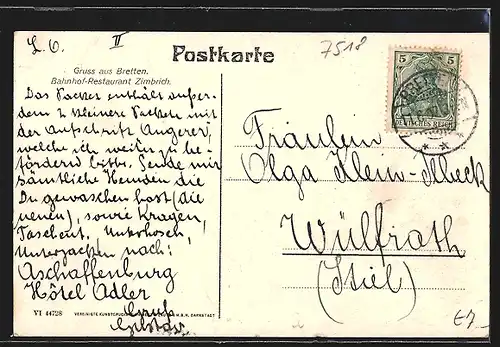 L. O. II
7518
Postkarte
Gruss aus Bretten.
Bahnhof-Restaurant Zimbrich.
5 5
DEUTSCHES REICH
Das Packet enthält außer-
dem 2 kleinere Packete mit
der Aufschrift Angerer,
welche ich weiter zu be-
fördern bitte. Sende mir
sämtliche Hemden die
Du gewaschen hast (die
neuen), sowie Kragen,
Taschent. Unterhosen,
Unterjacken nach:
Aschaffenburg
Hôtel Adler
Gruß
Gustav
Fräulein
Olga Klein-Ilbeck
Wülfrath
(Stiel)
VI 44728 VEREINIGTE KUNSTDRUCK M.B.H. DARMSTADT